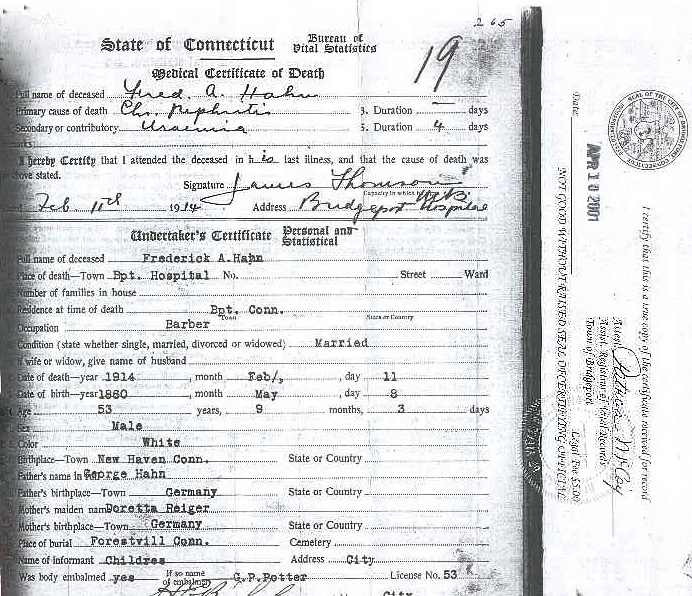 265
State of Connecticut
Bureau of
Vital Statistics
19
Medical Certificate of Death
Full name of deceased Fred. A. Hahn
Primary cause of death Chr. Nephritis 3. Duration — days
Secondary or contributory Uraemia 5. Duration 4 days
I hereby Certify that I attended the deceased in his last illness, and that the cause of death was
above stated.
Signature James Thomson
Capacity in which he
Feb 11th 1914 Address Bridgeport Hospital
Undertaker's Certificate Personal and
Statistical
Full name of deceased Frederick A.Hahn
Place of death—Town Bpt. Hospital No. Street Ward
Number of families in house
Residence at time of death Bpt. Conn.
Town State or Country
Occupation Barber
Condition (state whether single, married, divorced or widowed) Married
If wife or widow, give name of husband
Date of death—year 1914 , month Feb/, , day 11
Date of birth—year 1860 , month May , day 8
Age 53 years, 9 months, 3 days
Sex Male
Color White
Birthplace—Town New Haven Conn. State or Country
Father's name in George Hahn
Father's birthplace—Town Germany State or Country
Mother's maiden name Doretta Reiger
Mother's birthplace—Town Germany State or Country
Place of burial Forestvill Conn. Cemetery
Name of informant Childres Address City
Was body embalmed yes If so name of embalmer G.P.Potter License No. 53
City
I certify that this is a true copy of the certificate received for record
Attest Patricia McCoy
Assist. Registrar of Vital Records
Town of Bridgeport Legal Fee $5.00
NOT GOOD WITHOUT RAISED SEAL OF CERTIFYING OFFICIAL
Date: APR 18 2001
SEAL OF THE CITY OF BRIDGEPORT CONNECTICUT